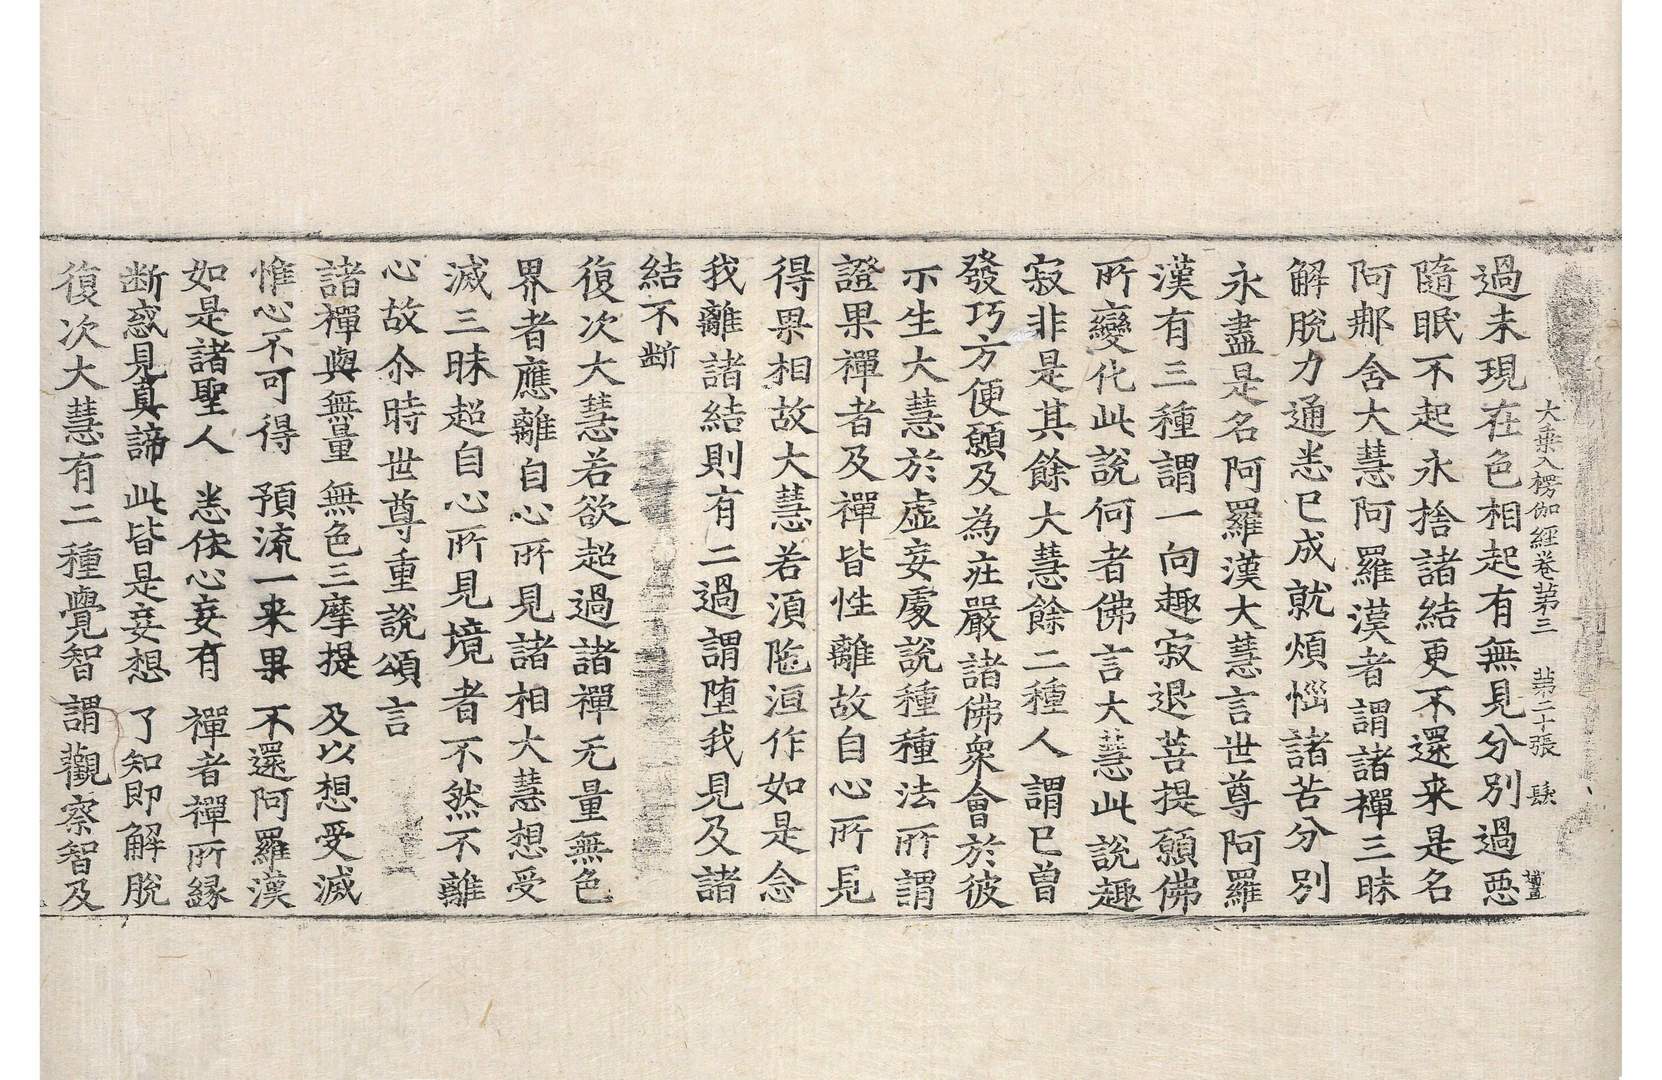 大乗入楞伽經卷第三 苐二十張 𦘺
過未現在色相起有無見分別過惡
隨眠不起永捨諸結更不還来是名
阿那含大慧阿羅漢者謂諸禪三昧
解脫力通悉已成就煩惱諸苦分別
永盡是名阿羅漢大慧言世尊阿羅
漢有三種謂一向趣寂退菩提願佛
所變化此說何者佛言大慧此說趣
寂非是其餘大慧餘二種人謂已曾
發巧方便願及為莊嚴諸佛衆會於彼
示生大慧於虛妄處說種種法所謂
證果禪者及禪皆性離故自心所見
得果相故大慧若須陁洹作如是念
我離諸結則有二過謂墮我見及諸
結不断
復次大慧若欲超過諸禪无量無色
界者應離自心所見諸相大慧想受
滅三昧超自心所見境者不然不離
心故尒時世尊重說頌言
諸禪與無量 無色三摩提 及以想受滅
惟心不可得 預流一来果 不還阿羅漢
如是諸聖人 悉依心妄有 禪者禪所緣
断惑見真諦 此皆是妄想 了知即解脫
復次大慧有二種覺智謂觀察智及